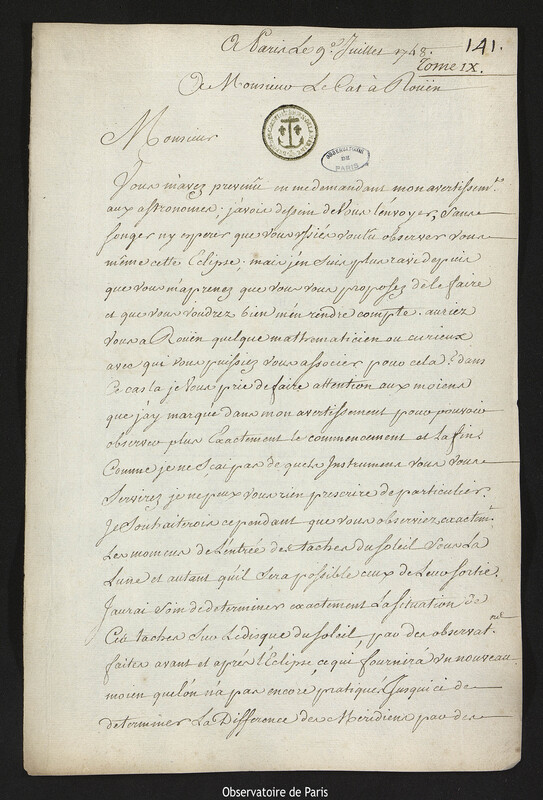 A Paris Le 9.e Juillet 1748.
141.
Tome IX.
A Monsieur Le Cat à Roüen
OBSERVATOIRE
DE
PARIS
Monsieur
Vous m'avez prevenu en me demandant mon avertissem.t
aux astronomes, j'avois dessein de Vous l'envoyer, sans
songer ny esperer que vous ussiés voulu observer vous
même cette Eclipse, mais j'en suis plus ravi depuis
que vous m'aprenez que vous vous proposez de le faire
et que vous voudrez bien m'en rendre compte. auriez
vous a Roüen quelque mathematicien ou curieux
avec qui vous puissiez vous associer pour cela? dans
Ce cas la je Vous prie de faire attention aux moiens
que j'ay marqué dans mon avertissement pour pouvoir
observer plus Exactement le commencement et la fin.
Comme je ne sçai pas de quels Instrumens vous vous
Servirez je ne peux vous rien prescrire de particulier.
Je Souhaiterois cependant que vous observiez exactem.t
Les momens de L'entrée des taches du Soleil sous La
Lune et autant qu'il sera possible ceux de Leur sortie.
J'aurai soin de determiner exactement La situation de
Ces taches sur Le disque du Soleil, par des observat.ons
faites avant et aprés l'Eclipse, ce qui fournira un nouveau
moien que l'on n'a pas encore pratiqué Jusqu'ici de
determiner La Difference des Meridiens par des
Observatoire de Paris